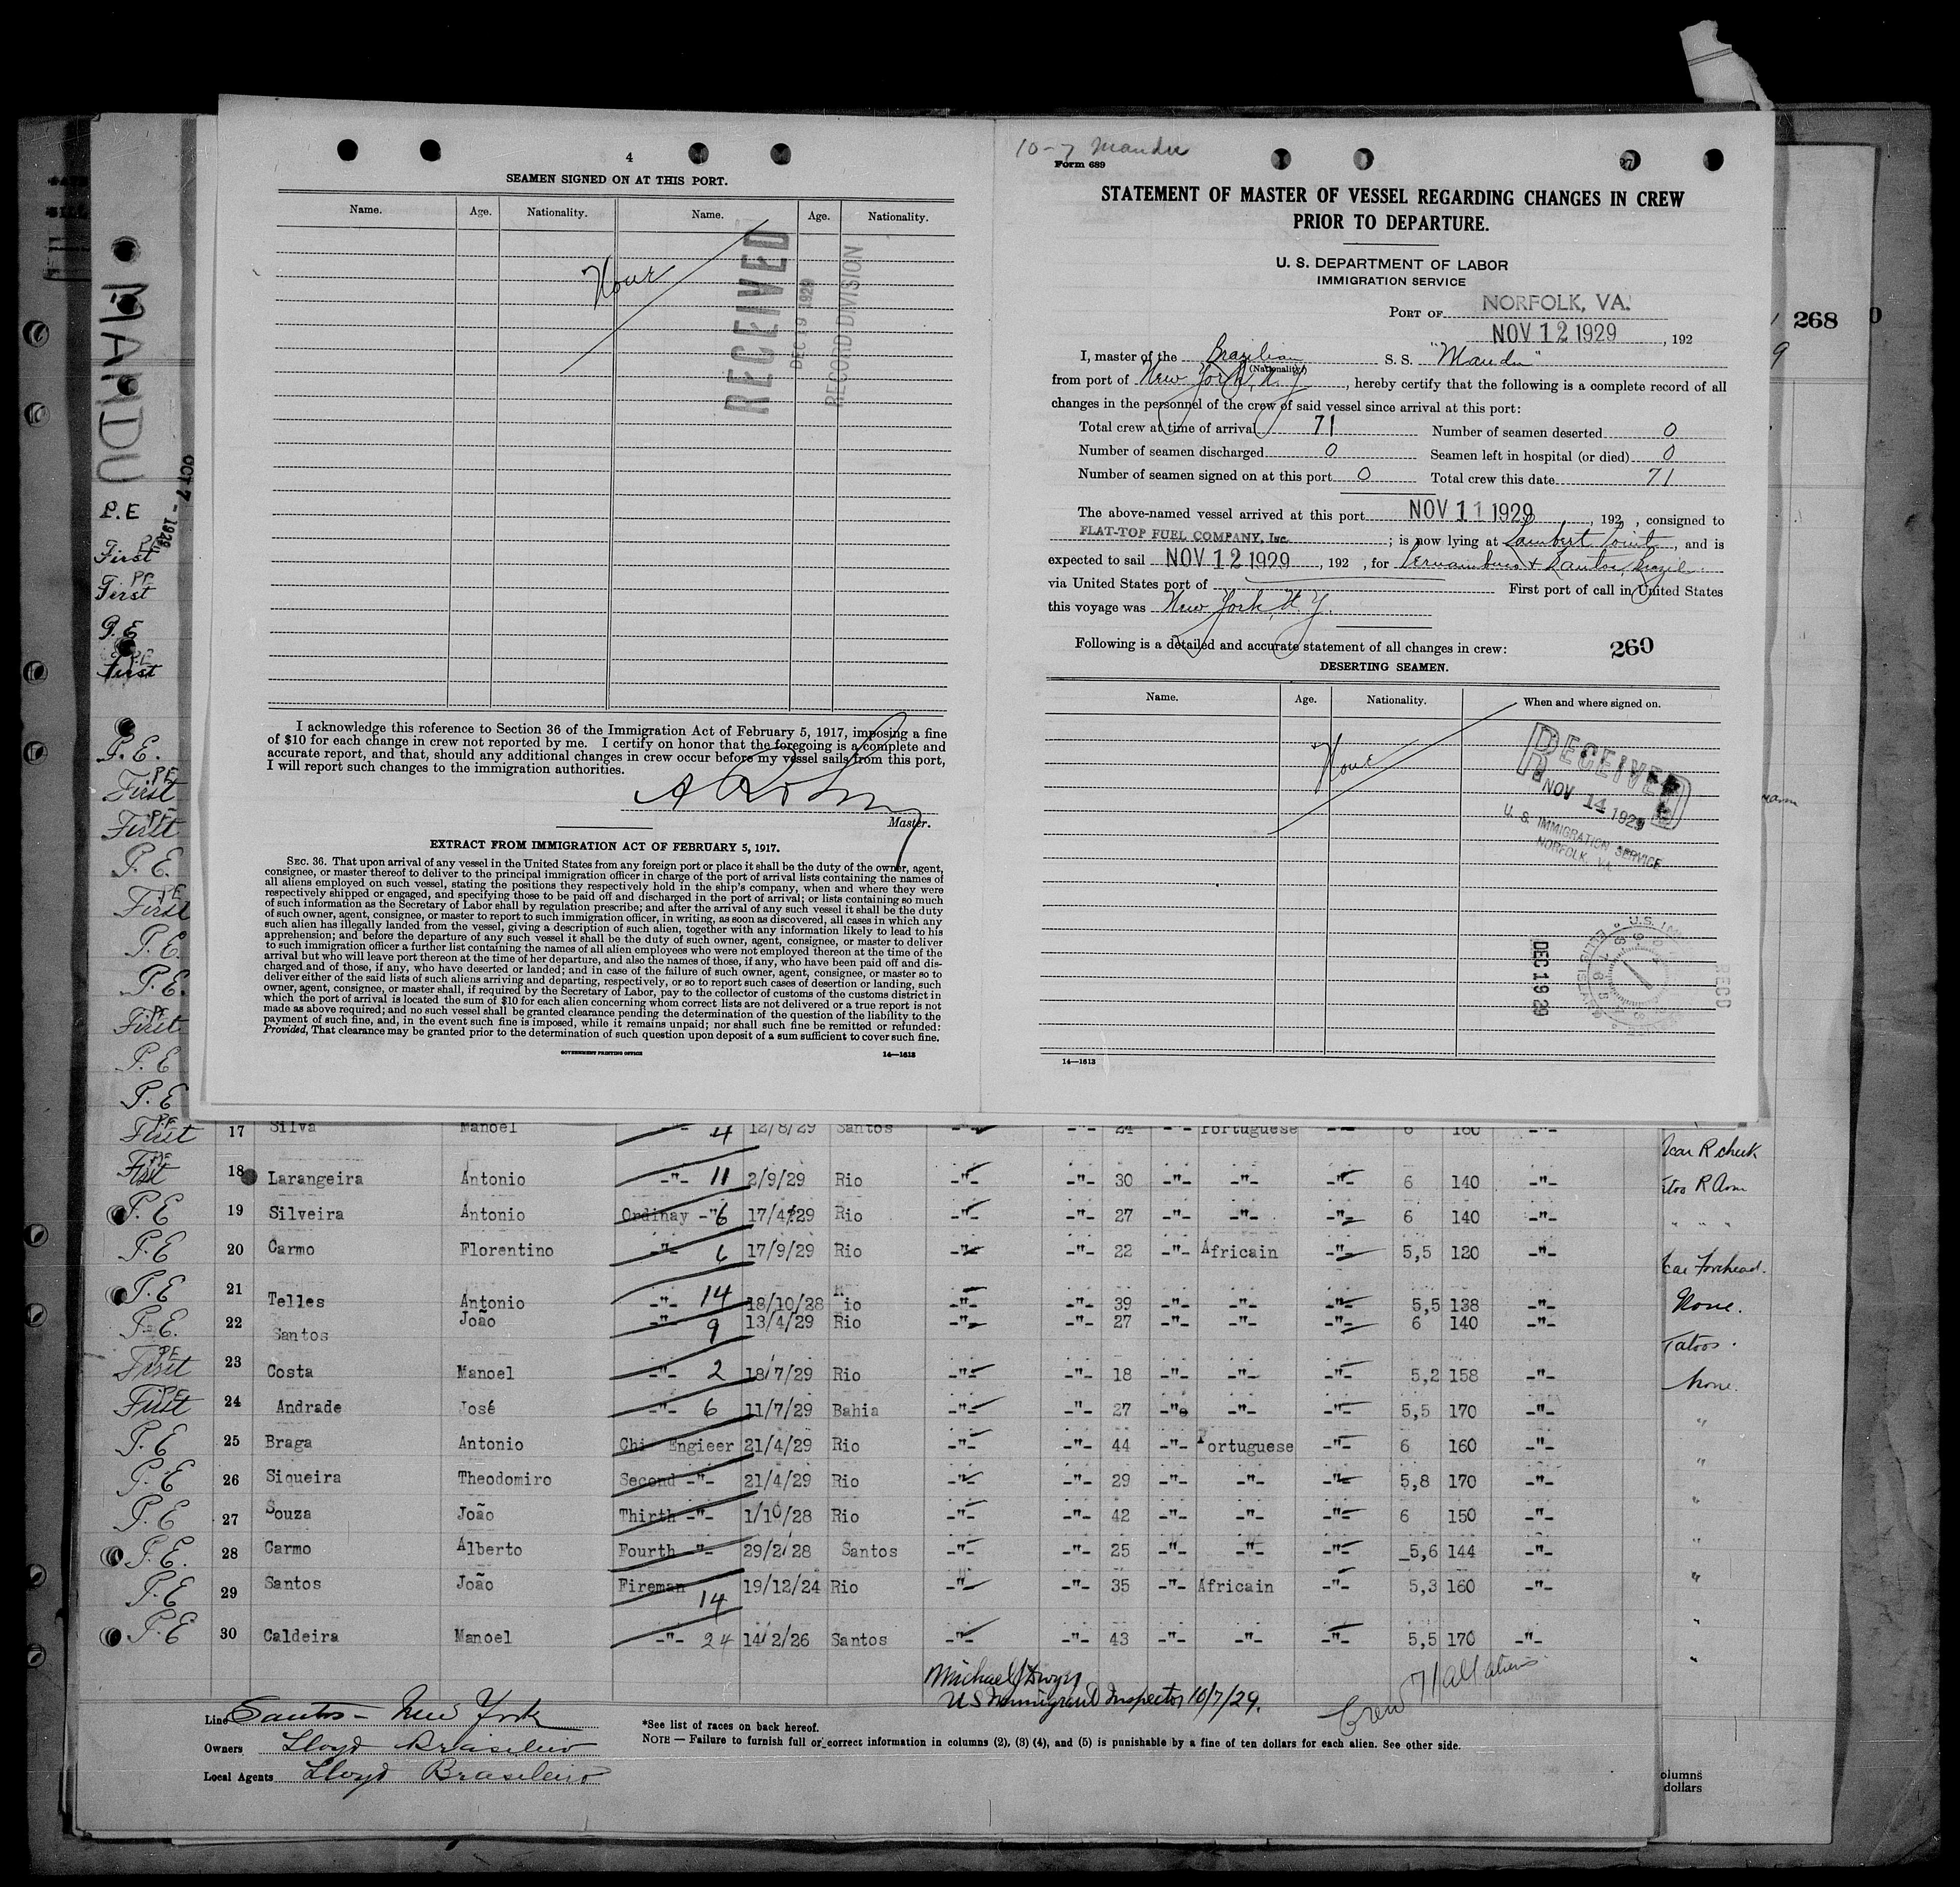 4
SEAMEN SIGNED ON AT THIS PORT.
Name. Age. Nationality. Name. Age. Nationality.
RECEIVED
DEC 19 1929
RECORD DIVISION
I acknowledge this reference to Section 36 of the Immigration Act of February 5, 1917, imposing a fine
of $10 for each change in crew not reported by me. I certify on honor that the foregoing is a complete and
accurate report, and that, should any additional changes in crew occur before my vessel sails from this port,
I will report such changes to the immigration authorities.
Master.
EXTRACT FROM IMMIGRATION ACT OF FEBRUARY 5, 1917.
SEC. 36. That upon arrival of any vessel in the United States from any foreign port or place it shall be the duty of the owner, agent,
consignee, or master thereof to deliver to the principal immigration officer in charge of the port of arrival lists containing the names of
all aliens employed on such vessel, stating the positions they respectively hold in the ship's company, when and where they were
respectively shipped or engaged, and specifying those to be paid off and discharged in the port of arrival; or lists containing so much
of such information as the Secretary of Labor shall by regulation prescribe; and after the arrival of any such vessel it shall be the duty
of such owner, agent, consignee, or master to report to such immigration officer, in writing, as soon as discovered, all cases in which any
such alien has illegally landed from the vessel, giving a description of such alien, together with any information likely to lead to his
apprehension; and before the departure of any such vessel it shall be the duty of such owner, agent, consignee, or master to deliver
to such immigration officer a further list containing the names of all alien employees who were not employed thereon at the time of the
arrival but who will leave port thereon at the time of her departure, and also the names of those, if any, who have been paid off and dis-
charged and of those, if any, who have deserted or landed; and in case of the failure of such owner, agent, consignee, or master so to
deliver either of the said lists of such aliens arriving and departing, respectively, or so to report such cases of desertion or landing, such
owner, agent, consignee, or master shall, if required by the Secretary of Labor, pay to the collector of customs of the customs district in
which the port of arrival is located the sum of $10 for each alien concerning whom correct lists are not delivered or a true report is not
made as above required; and no such vessel shall be granted clearance pending the determination of the question of the liability to the
payment of such fine, and, in the event such fine is imposed, while it remains unpaid; nor shall such fine be remitted or refunded:
Provided, That clearance may be granted prior to the determination of such question upon deposit of a sum sufficient to cover such fine.
GOVERNMENT PRINTING OFFICE 14—1613
10-7 Mandu
Form 689
27
STATEMENT OF MASTER OF VESSEL REGARDING CHANGES IN CREW
PRIOR TO DEPARTURE.
U. S. DEPARTMENT OF LABOR
IMMIGRATION SERVICE
PORT OF NORFOLK, VA.
NOV 12 1929, 192
I, master of the Brazilian S. S. "Mandu"
(Nationality)
from port of New York, N. Y., hereby certify that the following is a complete record of all
changes in the personnel of the crew of said vessel since arrival at this port:
Total crew at time of arrival 71 Number of seamen deserted 0
Number of seamen discharged 0 Seamen left in hospital (or died) 0
Number of seamen signed on at this port 0 Total crew this date 71
The above-named vessel arrived at this port NOV 11 1929, 192 , consigned to
FLAT-TOP FUEL COMPANY, Inc.; is now lying at Lambert Point, and is
expected to sail NOV 12 1929, 192 , for Pernambuco & Santos, Brazil.
via United States port of First port of call in United States
this voyage was New York, N. Y.
Following is a detailed and accurate statement of all changes in crew: 269
DESERTING SEAMEN.
Name. Age. Nationality. When and where signed on.
None
RECEIVED
NOV 14 1929
U. S. IMMIGRATION SERVICE
NORFOLK, VA.
DEC 19 29
RECD
14—1613
268
MANDU
OCT 7 - 1929
P.E
First PE
First PE
P.E
First PE
P.E.
First PE
First PE
P.E.
First PE
P.E.
P.E.
First PE
P.E
P.E
First PE 17 Silva Manoel -"- 4 12/8/29 Santos -"- -"- 24 -"- Portuguese -"- 6 160 -"- Scar R cheek
First PE 18 Larangeira Antonio -"- 11 2/9/29 Rio -"- -"- 30 -"- -"- -"- 6 140 -"- R Arm
P.E 19 Silveira Antonio Ordinay -"- 6 17/4/29 Rio -"- -"- 27 -"- -"- -"- 6 140 -"- " " "
P.E 20 Carmo Florentino -"- 6 17/9/29 Rio -"- -"- 22 -"- Africain -"- 5,5 120 -"- Forehead.
P.E 21 Telles Antonio -"- 14 18/10/28 Rio -"- -"- 39 -"- -"- -"- 5,5 138 -"- None.
P.E. 22 Santos João -"- 9 13/4/29 Rio -"- -"- 27 -"- -"- -"- 6 140 -"- Tatoos.
First PE 23 Costa Manoel -"- 2 18/7/29 Rio -"- -"- 18 -"- -"- -"- 5,2 158 -"- None.
First PE 24 Andrade José -"- 6 11/7/29 Bahia -"- -"- 27 -"- -"- -"- 5,5 170 -"- "
P.E 25 Braga Antonio Chi Engieer 21/4/29 Rio -"- -"- 44 -"- Portuguese -"- 6 160 -"- "
P.E 26 Siqueira Theodomiro Second -"- 21/4/29 Rio -"- -"- 29 -"- -"- -"- 5,8 170 -"- "
P.E 27 Souza João Thirth -"- 1/10/28 Rio -"- -"- 42 -"- -"- -"- 6 150 -"- "
P.E. 28 Carmo Alberto Fourth -"- 29/2/28 Santos -"- -"- 25 -"- -"- -"- 5,6 144 -"- "
P.E 29 Santos João Fireman 14 19/12/24 Rio -"- -"- 35 -"- Africain -"- 5,3 160 -"- "
P.E 30 Caldeira Manoel -"- 24 14/2/26 Santos -"- -"- 43 -"- -"- -"- 5,5 170 -"- "
Michael J Dwyer
US Immigrant Inspector 10/7/29.
Crew 71 all aliens
Line Santos - New York
Owners Lloyd Brasileiro
Local Agents Lloyd Brasileiro
*See list of races on back hereof.
NOTE — Failure to furnish full or correct information in columns (2), (3) (4), and (5) is punishable by a fine of ten dollars for each alien. See other side.
olumns
dollars